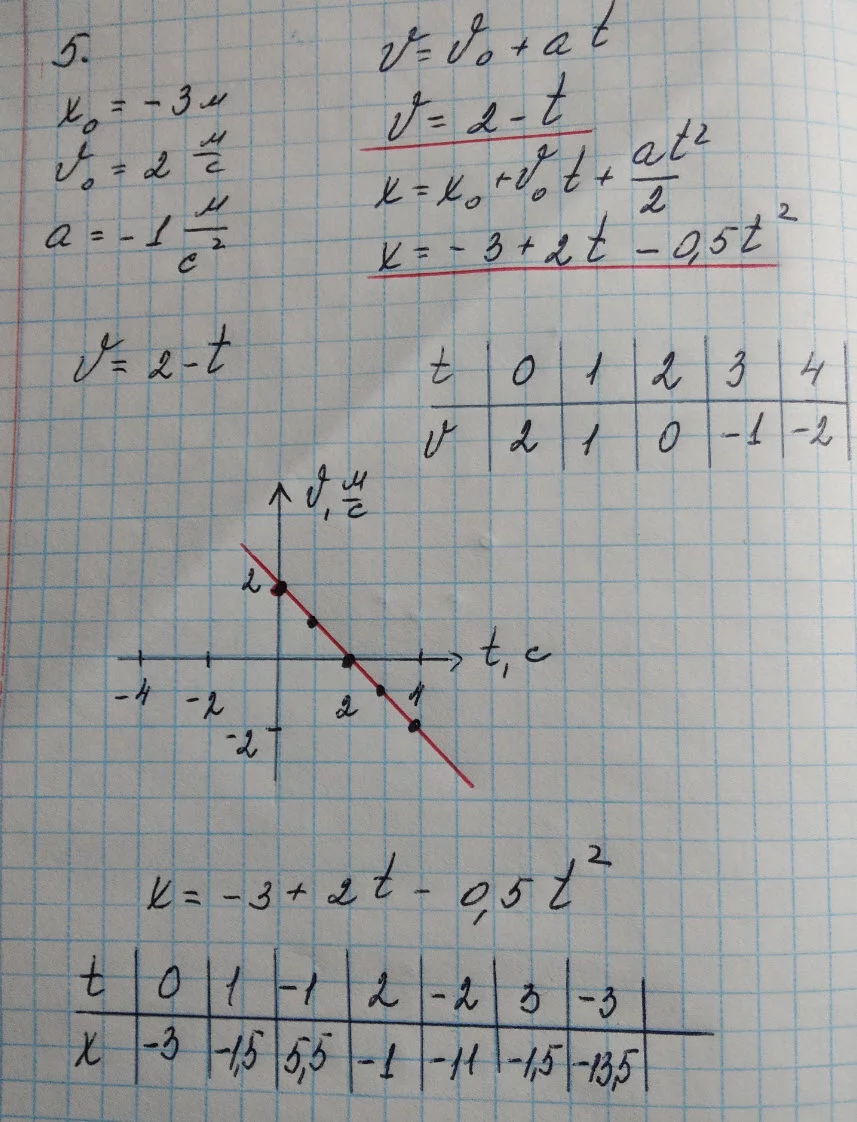 5.
x₀ = -3 м
v₀ = 2 м/с
a = -1 м/с²
v = v₀ + a t
v = 2 - t
x = x₀ + v₀ t + at²/2
x = -3 + 2t - 0,5t²
v = 2 - t
t | 0 | 1 | 2 | 3 | 4
v | 2 | 1 | 0 | -1 | -2
v, м/с
2
t, с
-4 -2 2 4
-2
x = -3 + 2t - 0,5t²
t | 0 | 1 | -1 | 2 | -2 | 3 | -3
x | -3 | -1,5 | 5,5 | -1 | -11 | -1,5 | -13,5